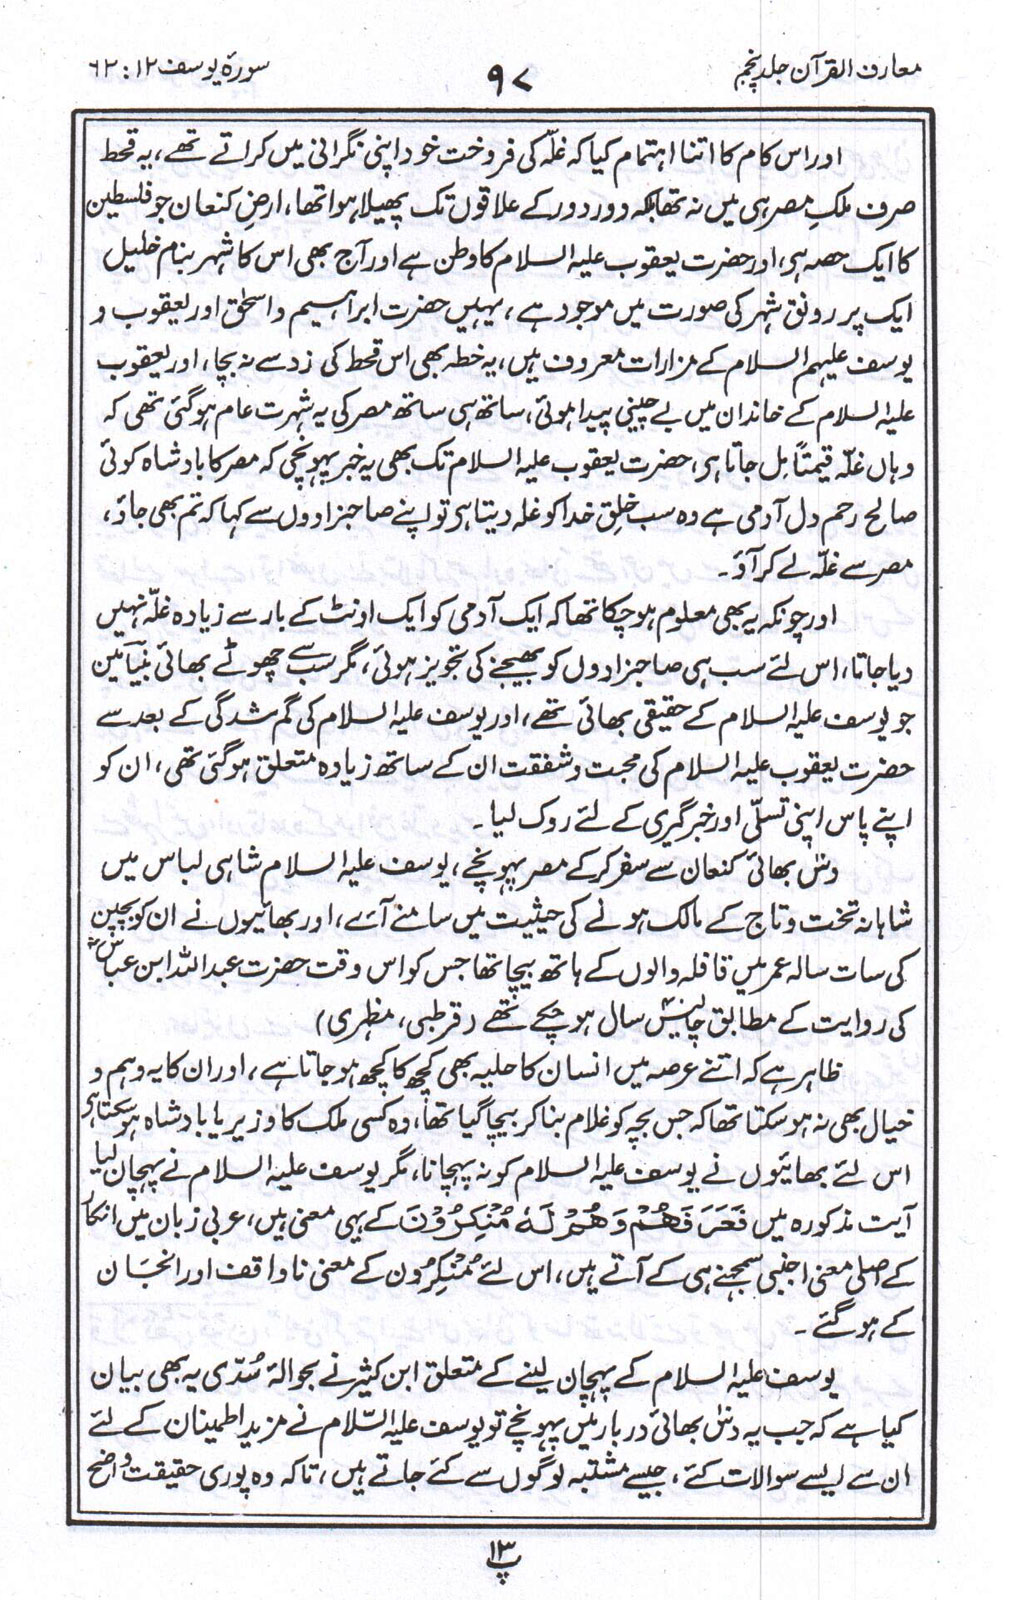 معارف القرآن جلد پنجم
۹۷
سورۂ یوسف ۱۲ : ۶۲
اور اس کام کا اتنا اہتمام کیا کہ غلّہ کی فروخت خود اپنی نگرانی میں کراتے تھے، یہ قحط
صرف ملکِ مصر ہی میں نہ تھا بلکہ دور دور کے علاقوں تک پھیلا ہوا تھا، ارضِ کنعان جو فلسطین
کا ایک حصہ ہی، اور حضرت یعقوب علیہ السلام کا وطن ہے اور آج بھی اس کا شہر بنام خلیل
ایک پر رونق شہر کی صورت میں موجود ہے، یہیں حضرت ابراہیم و اسحٰق اور یعقوب و
یوسف علیہم السلام کے مزارات معروف ہیں، یہ خطہ بھی اس قحط کی زد سے نہ بچا، اور یعقوب
علیہ السلام کے خاندان میں بے چینی پیدا ہوئی، ساتھ ہی ساتھ مصر کی یہ شہرت عام ہوگئی تھی کہ
وہاں غلّہ قیمتاً مل جاتا ہی، حضرت یعقوب علیہ السلام تک بھی یہ خبر پہونچی کہ مصر کا بادشاہ کوئی
صالح رحم دل آدمی ہے وہ سب خلقِ خدا کو غلہ دیتا ہی تو اپنے صاحبزادوں سے کہا کہ تم بھی جاؤ،
مصر سے غلّہ لے کر آؤ۔
اور چونکہ یہ بھی معلوم ہو چکا تھا کہ ایک آدمی کو ایک اونٹ کے بار سے زیادہ غلّہ نہیں
دیا جاتا، اس لئے سب ہی صاحبزادوں کو بھیجنے کی تجویز ہوئی، مگر سب سے چھوٹے بھائی بنیامین
جو یوسف علیہ السلام کے حقیقی بھائی تھے، اور یوسف علیہ السلام کی گم شدگی کے بعد سے
حضرت یعقوب علیہ السلام کی محبت و شفقت ان کے ساتھ زیادہ متعلق ہوگئی تھی، ان کو
اپنے پاس اپنی تسلّی اور خبر گیری کے لئے روک لیا۔
دس بھائی کنعان سے سفر کر کے مصر پہونچے، یوسف علیہ السلام شاہی لباس میں
شاہانہ تخت و تاج کے مالک ہونے کی حیثیت میں سامنے آئے، اور بھائیوں نے ان کو بچپن
کی سات سالہ عمر میں قافلہ والوں کے ہاتھ بیچا تھا جس کو اس وقت حضرت عبداللہ ابن عباسؓ
کی روایت کے مطابق چالیس سال ہوچکے تھے (قرطبی، مظہری)
ظاہر ہے کہ اتنے عرصہ میں انسان کا حلیہ بھی کچھ کا کچھ ہوجاتا ہے، اور ان کا یہ وہم و
خیال بھی نہ ہوسکتا تھا کہ جس بچہ کو غلام بنا کر بیچا گیا تھا، وہ کسی ملک کا وزیر یا بادشاہ ہوسکتا ہی
اس لئے بھائیوں نے یوسف علیہ السلام کو نہ پہچانا، مگر یوسف علیہ السلام نے پہچان لیا
آیت مذکورہ میں فَعَرَفَهُمْ وَهُمْ لَهٗ مُنْكِرُوْنَ کے یہی معنی ہیں، عربی زبان میں انکار
کے اصلی معنی اجنبی سمجھنے ہی کے آتے ہیں، اس لئے مُنْکِرُون کے معنی ناواقف اور انجان
کے ہوگئے۔
یوسف علیہ السلام کے پہچان لینے کے متعلق ابن کثیر نے بحوالۂ سُدّی یہ بھی بیان
کیا ہے کہ جب یہ دس بھائی دربار میں پہونچے تو یوسف علیہ السّلام نے مزید اطمینان کے لئے
ان سے ایسے سوالات کئے، جیسے مشتبہ لوگوں سے کئے جاتے ہیں، تاکہ وہ پوری حقیقت واضح
پ۱۳